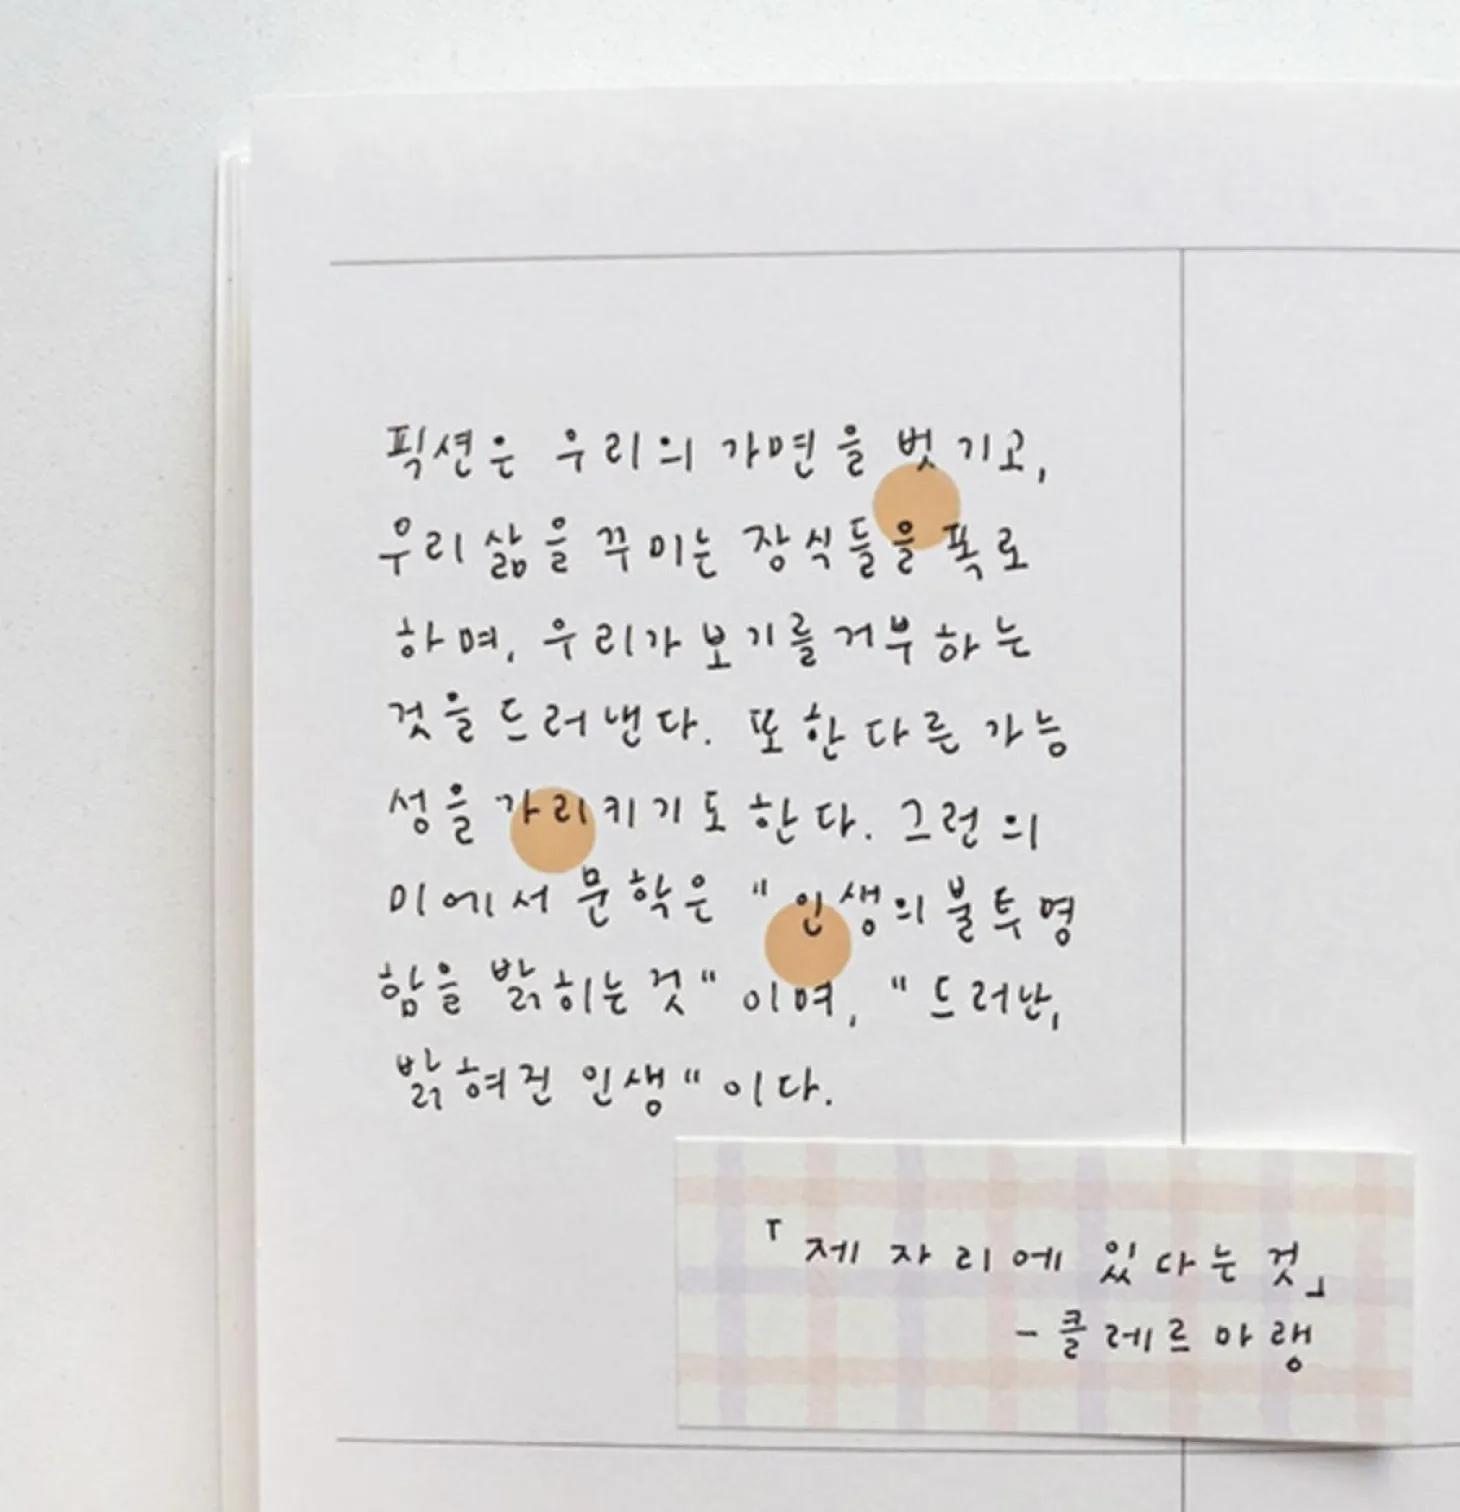 픽션은 우리의 가면을 벗기고,
우리 삶을 꾸미는 장식들을 폭로
하며, 우리가 보기를 거부하는
것을 드러낸다. 또한 다른 가능
성을 가리키기도 한다. 그런 의
미에서 문학은 "인생의 불투명
함을 밝히는 것"이며, "드러난,
밝혀진 인생"이다.
「제 자리에 있다는 것」
- 클레르 마랭